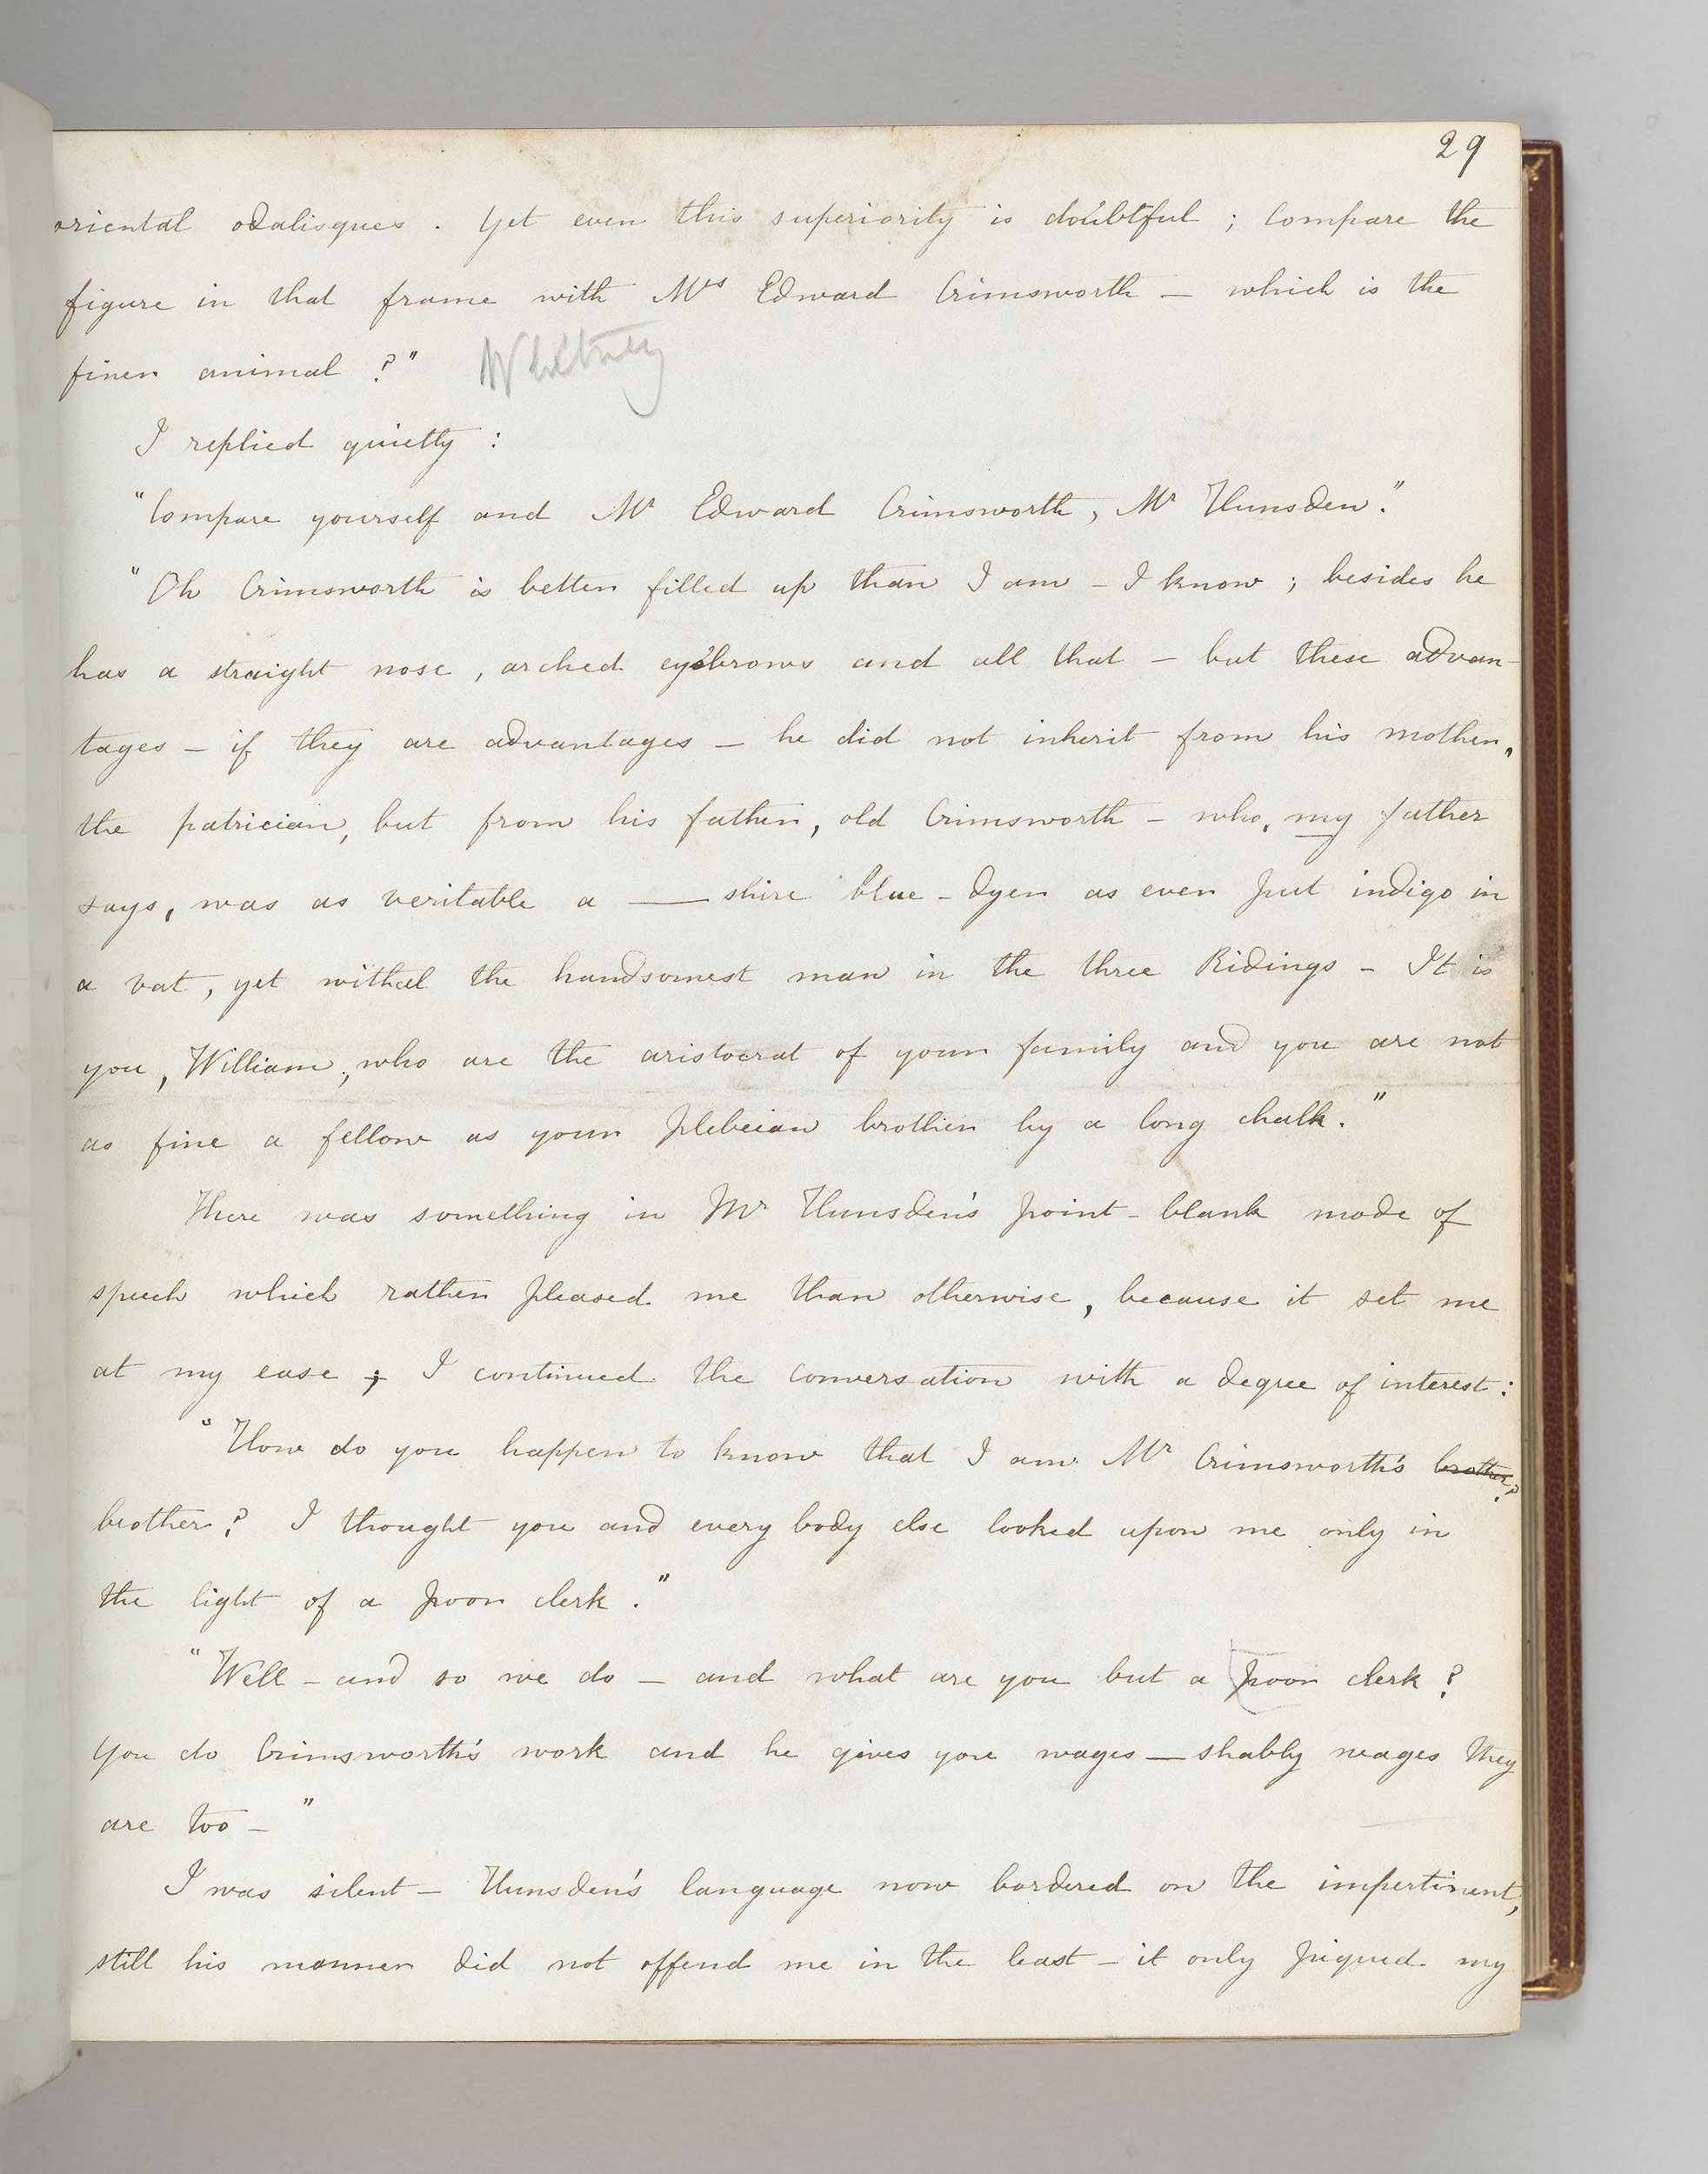 29
oriental odalisques. Yet even this superiority is doubtful; Compare the
figure in that frame with Mrs Edward Crimsworth — which is the
finer animal?"
I replied quietly:
"Compare yourself and Mr Edward Crimsworth, Mr Hunsden."
"Oh Crimsworth is better filled up than I am – I know; besides he
has a straight nose, arched eyebrows and all that – but these advan-
tages – if they are advantages – he did not inherit from his mother,
the patrician, but from his father, old Crimsworth – who, my father
says, was as veritable a ——shire blue-dyer as ever put indigo in
a vat, yet withal the handsomest man in the three Ridings – It is
you, William, who are the aristocrat of your family and you are not
as fine a fellow as your plebeian brother by a long chalk."
There was something in Mr Hunsden's point-blank mode of
speech which rather pleased me than otherwise, because it set me
at my ease; I continued the conversation with a degree of interest:
"How do you happen to know that I am Mr Crimsworth's brother?
brother? I thought you and every body else looked upon me only in
the light of a poor clerk."
"Well – and so we do – and what are you but a poor clerk?
You do Crimsworth's work and he gives you wages — shabby wages they
are too –"
I was silent – Hunsden's language now bordered on the impertinent,
still his manner did not offend me in the least – it only piqued my